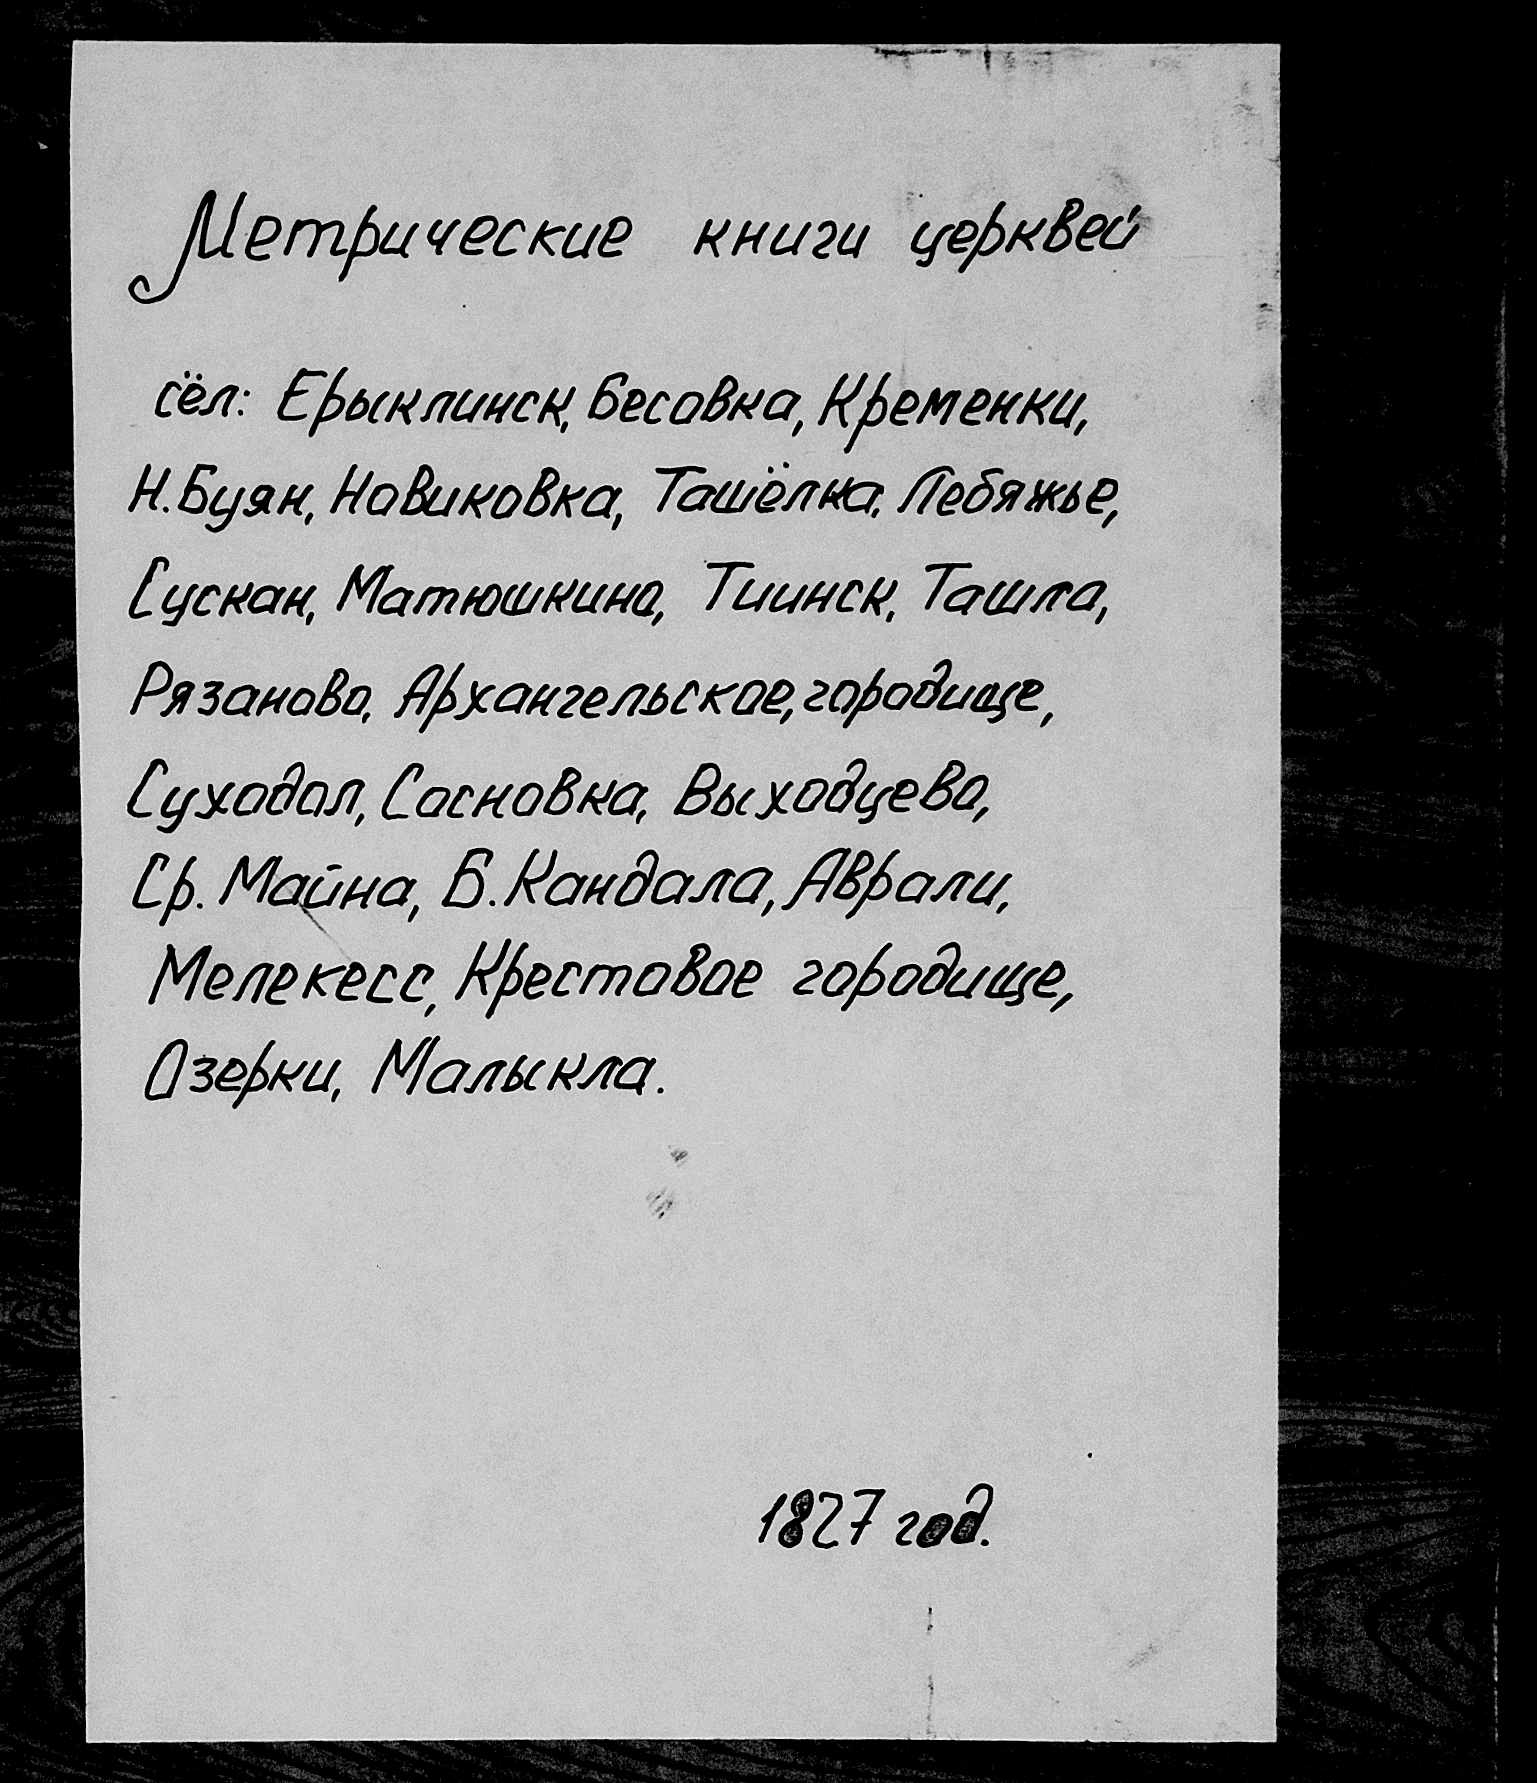 Метрические книги церквей
сёл: Ерыклинск, Бесовка, Кременки,
Н. Буян, Новиковка, Ташёлка, Лебяжье,
Сускан, Матюшкино, Тиинск, Ташла,
Рязаново, Архангельское, городище,
Суходол, Сосновка, Выходцево,
Ср. Майна, Б. Кандала, Аврали,
Мелекесс, Крестовое городище,
Озерки, Малыкла.
1827 год.